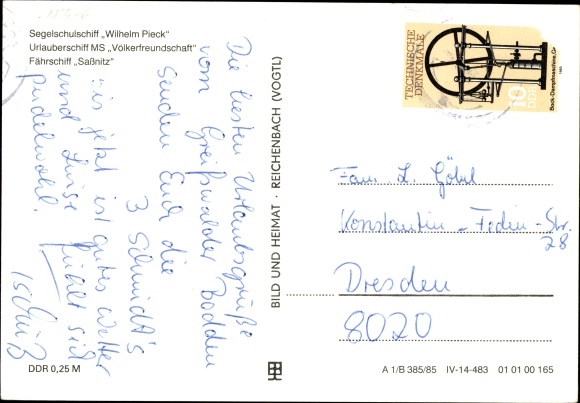 Segelschulschiff „Wilhelm Pieck“
Urlauberschiff MS „Völkerfreundschaft“
Fährschiff „Saßnitz“
Die besten Urlaubsgrüße
vom Greifswalder Bodden
senden Euch die
3 Schmidt's
Bis jetzt ist gutes Wetter
und Luise fühlt sich
pudelwohl.
BILD UND HEIMAT · REICHENBACH (VOGTL)
TECHNISCHE
DENKMALE
10
DDR
Bock-Dampfmaschine,
1985
Fam. L. Göbel
Konstantin-Fedin-Str.
28
Dresden
8020
DDR 0,25 M
A 1/B 385/85 IV-14-483 01 01 00 165